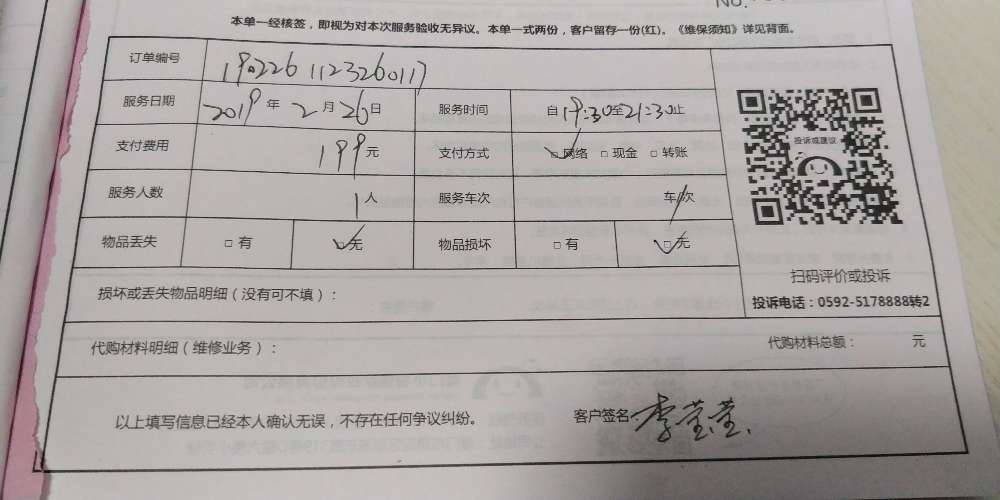 No.
本单一经核签，即视为对本次服务验收无异议。本单一式两份，客户留存一份(红)。《维保须知》详见背面。
订单编号 190226 1123260117
服务日期 2019 年 2 月 26 日 服务时间 自 19:30 至 21:30 止
支付费用 199 元 支付方式 □网络 □现金 □转账
服务人数 1 人 服务车次 车/次
物品丢失 □有 □无 物品损坏 □有 □无
投诉或建议
扫码评价或投诉
投诉电话：0592-5178888转2
损坏或丢失物品明细（没有可不填）：
代购材料明细（维修业务）： 代购材料总额： 元
以上填写信息已经本人确认无误，不存在任何争议纠纷。 客户签名：李莹莹